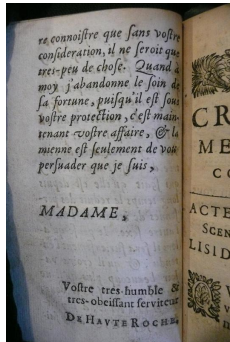 re connoistre que sans vostre
consideration, il ne seroit que
tres-peu de chose. Quand à
moy j'abandonne le soin de
sa fortune, puisqu'il est sous
vostre protection, c'est main-
tenant vostre affaire, & la
mienne est seulement de vou
persuader que je suis,
MADAME,
Vostre tres-humble &
tres-obeissant serviteur
DE HAUTE ROCHE.
CR
ME
CO
ACTE
SCEN
LISID